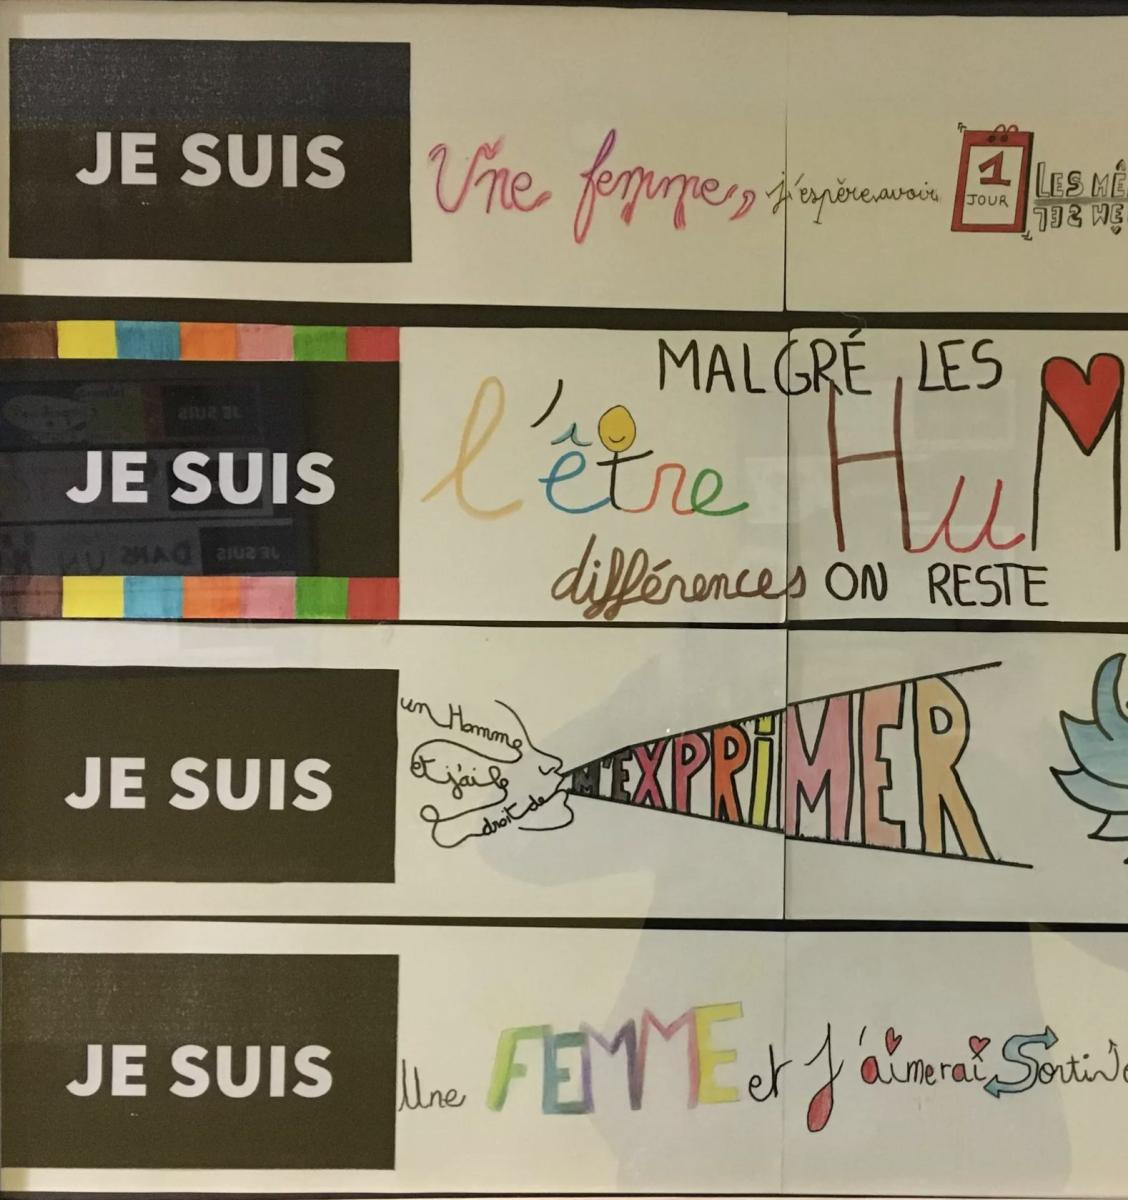 JE SUIS Une femme, j'espère avoir 1 JOUR LES MÊ
JE SUIS l'être HuM
MALGRÉ LES
différences ON RESTE
JE SUIS un Homme
et j'ai le
droit de
M'EXPRIMER
JE SUIS Une FEMME et J'aimerai Sortir